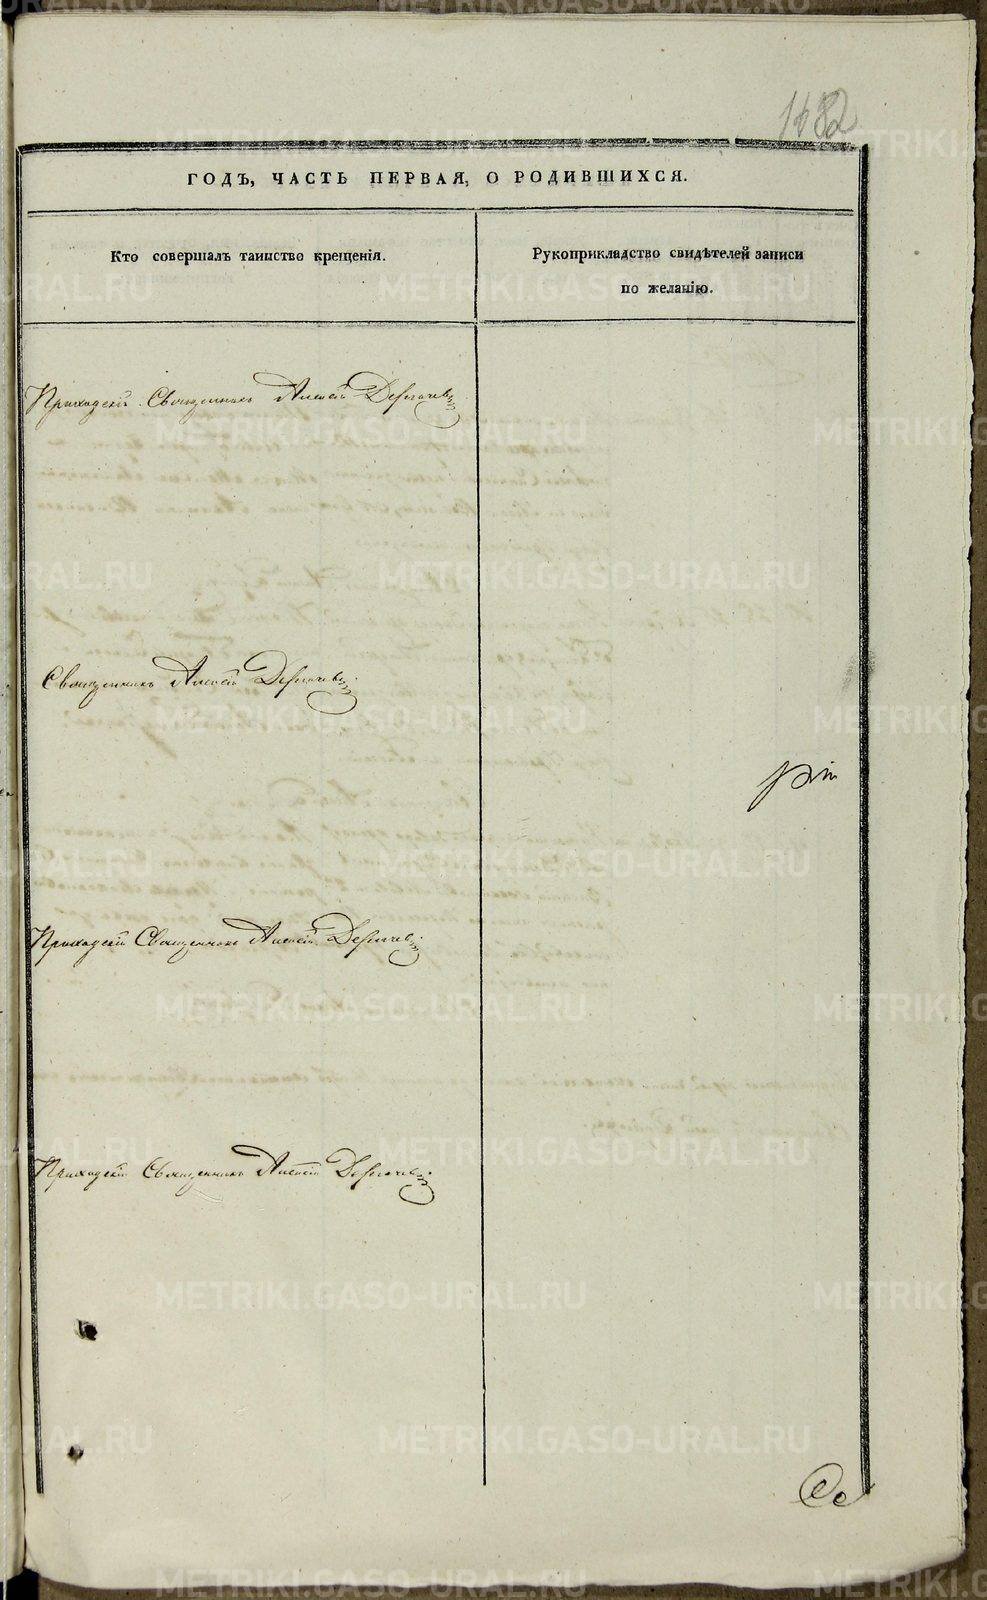 1182
ГОДЪ, ЧАСТЬ ПЕРВАЯ, О РОДИВШИХСЯ.
Кто совершалъ таинство крещенія.
Рукоприкладство свидѣтелей записи
по желанію.
Приходскій Священникъ Алексій
Священникъ Алексій
Приходскій Священникъ Алексій
Приходскій Священникъ Алексій
METRIKI.GASO-URAL.RU